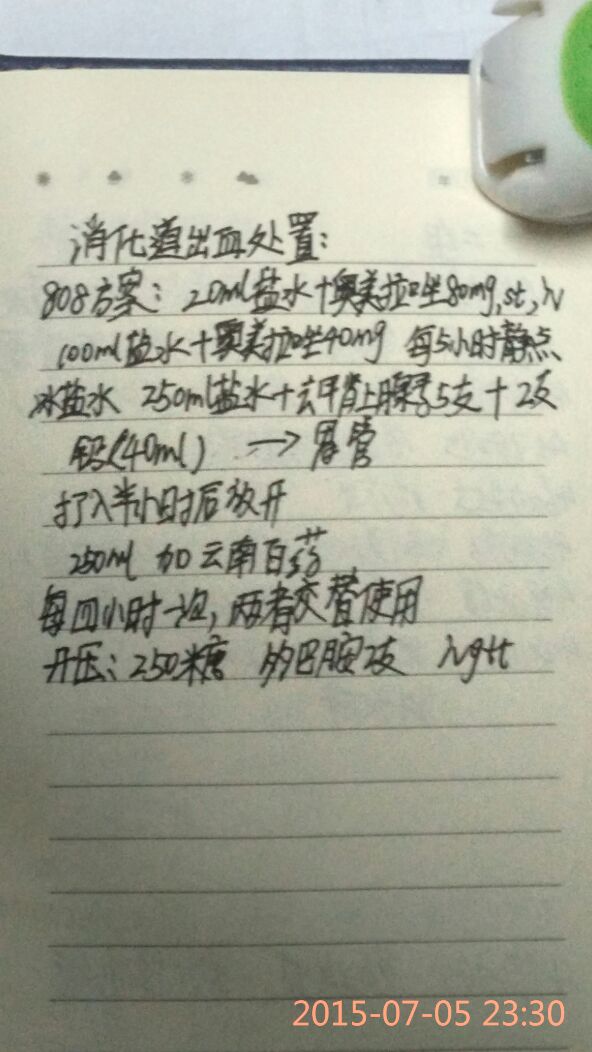 消化道出血处置:
808方案: 20ml盐水+奥美拉唑80mg,st,iv
100ml盐水+奥美拉唑40mg 每5小时静点
冰盐水 250ml盐水+去甲肾上腺素5支+2支
(40ml) → 胃管
打入半小时后放开
250ml 加云南白药
每四小时一边,两者交替使用
升压: 250糖 多巴胺2支 ivgtt
2015-07-05 23:30